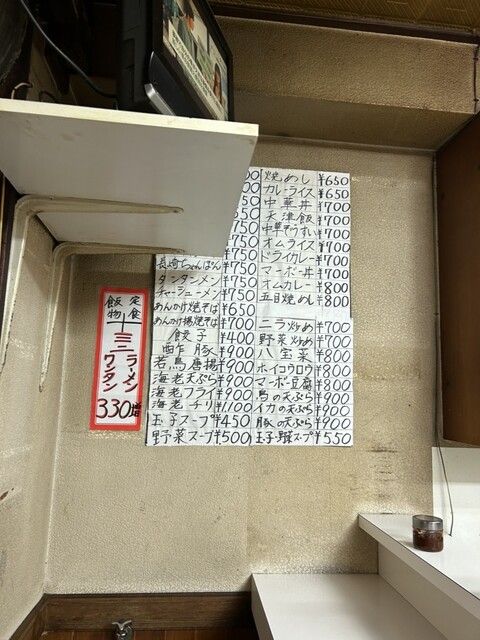 焼めし ¥650
カレーライス ¥650
中華丼 ¥700
天津飯 ¥700
中華ぞうすい ¥700
オムライス ¥700
ドライカレー ¥700
マーボー丼 ¥700
オムカレー ¥800
五目焼めし ¥800
ニラ炒め ¥700
野菜炒め ¥700
八宝菜 ¥800
ホイコウロウ ¥800
マーボー豆腐 ¥800
鳥の天ぷら ¥900
イカの天ぷら ¥900
豚の天ぷら ¥900
玉子野菜スープ ¥550
00
750
650
¥750
¥750
長崎ちゃんぽん ¥750
タンタンメン ¥750
チャーシューメン ¥750
あんかけ焼そば ¥650
あんかけ揚焼そば ¥700
餃子 ¥400
酢豚 ¥900
若鳥唐揚 ¥900
海老天ぷら ¥900
海老フライ ¥900
海老チリ ¥1100
玉子スープ ¥450
野菜スープ ¥500
定食
飯物
ミニラーメン
ワンタン
330増